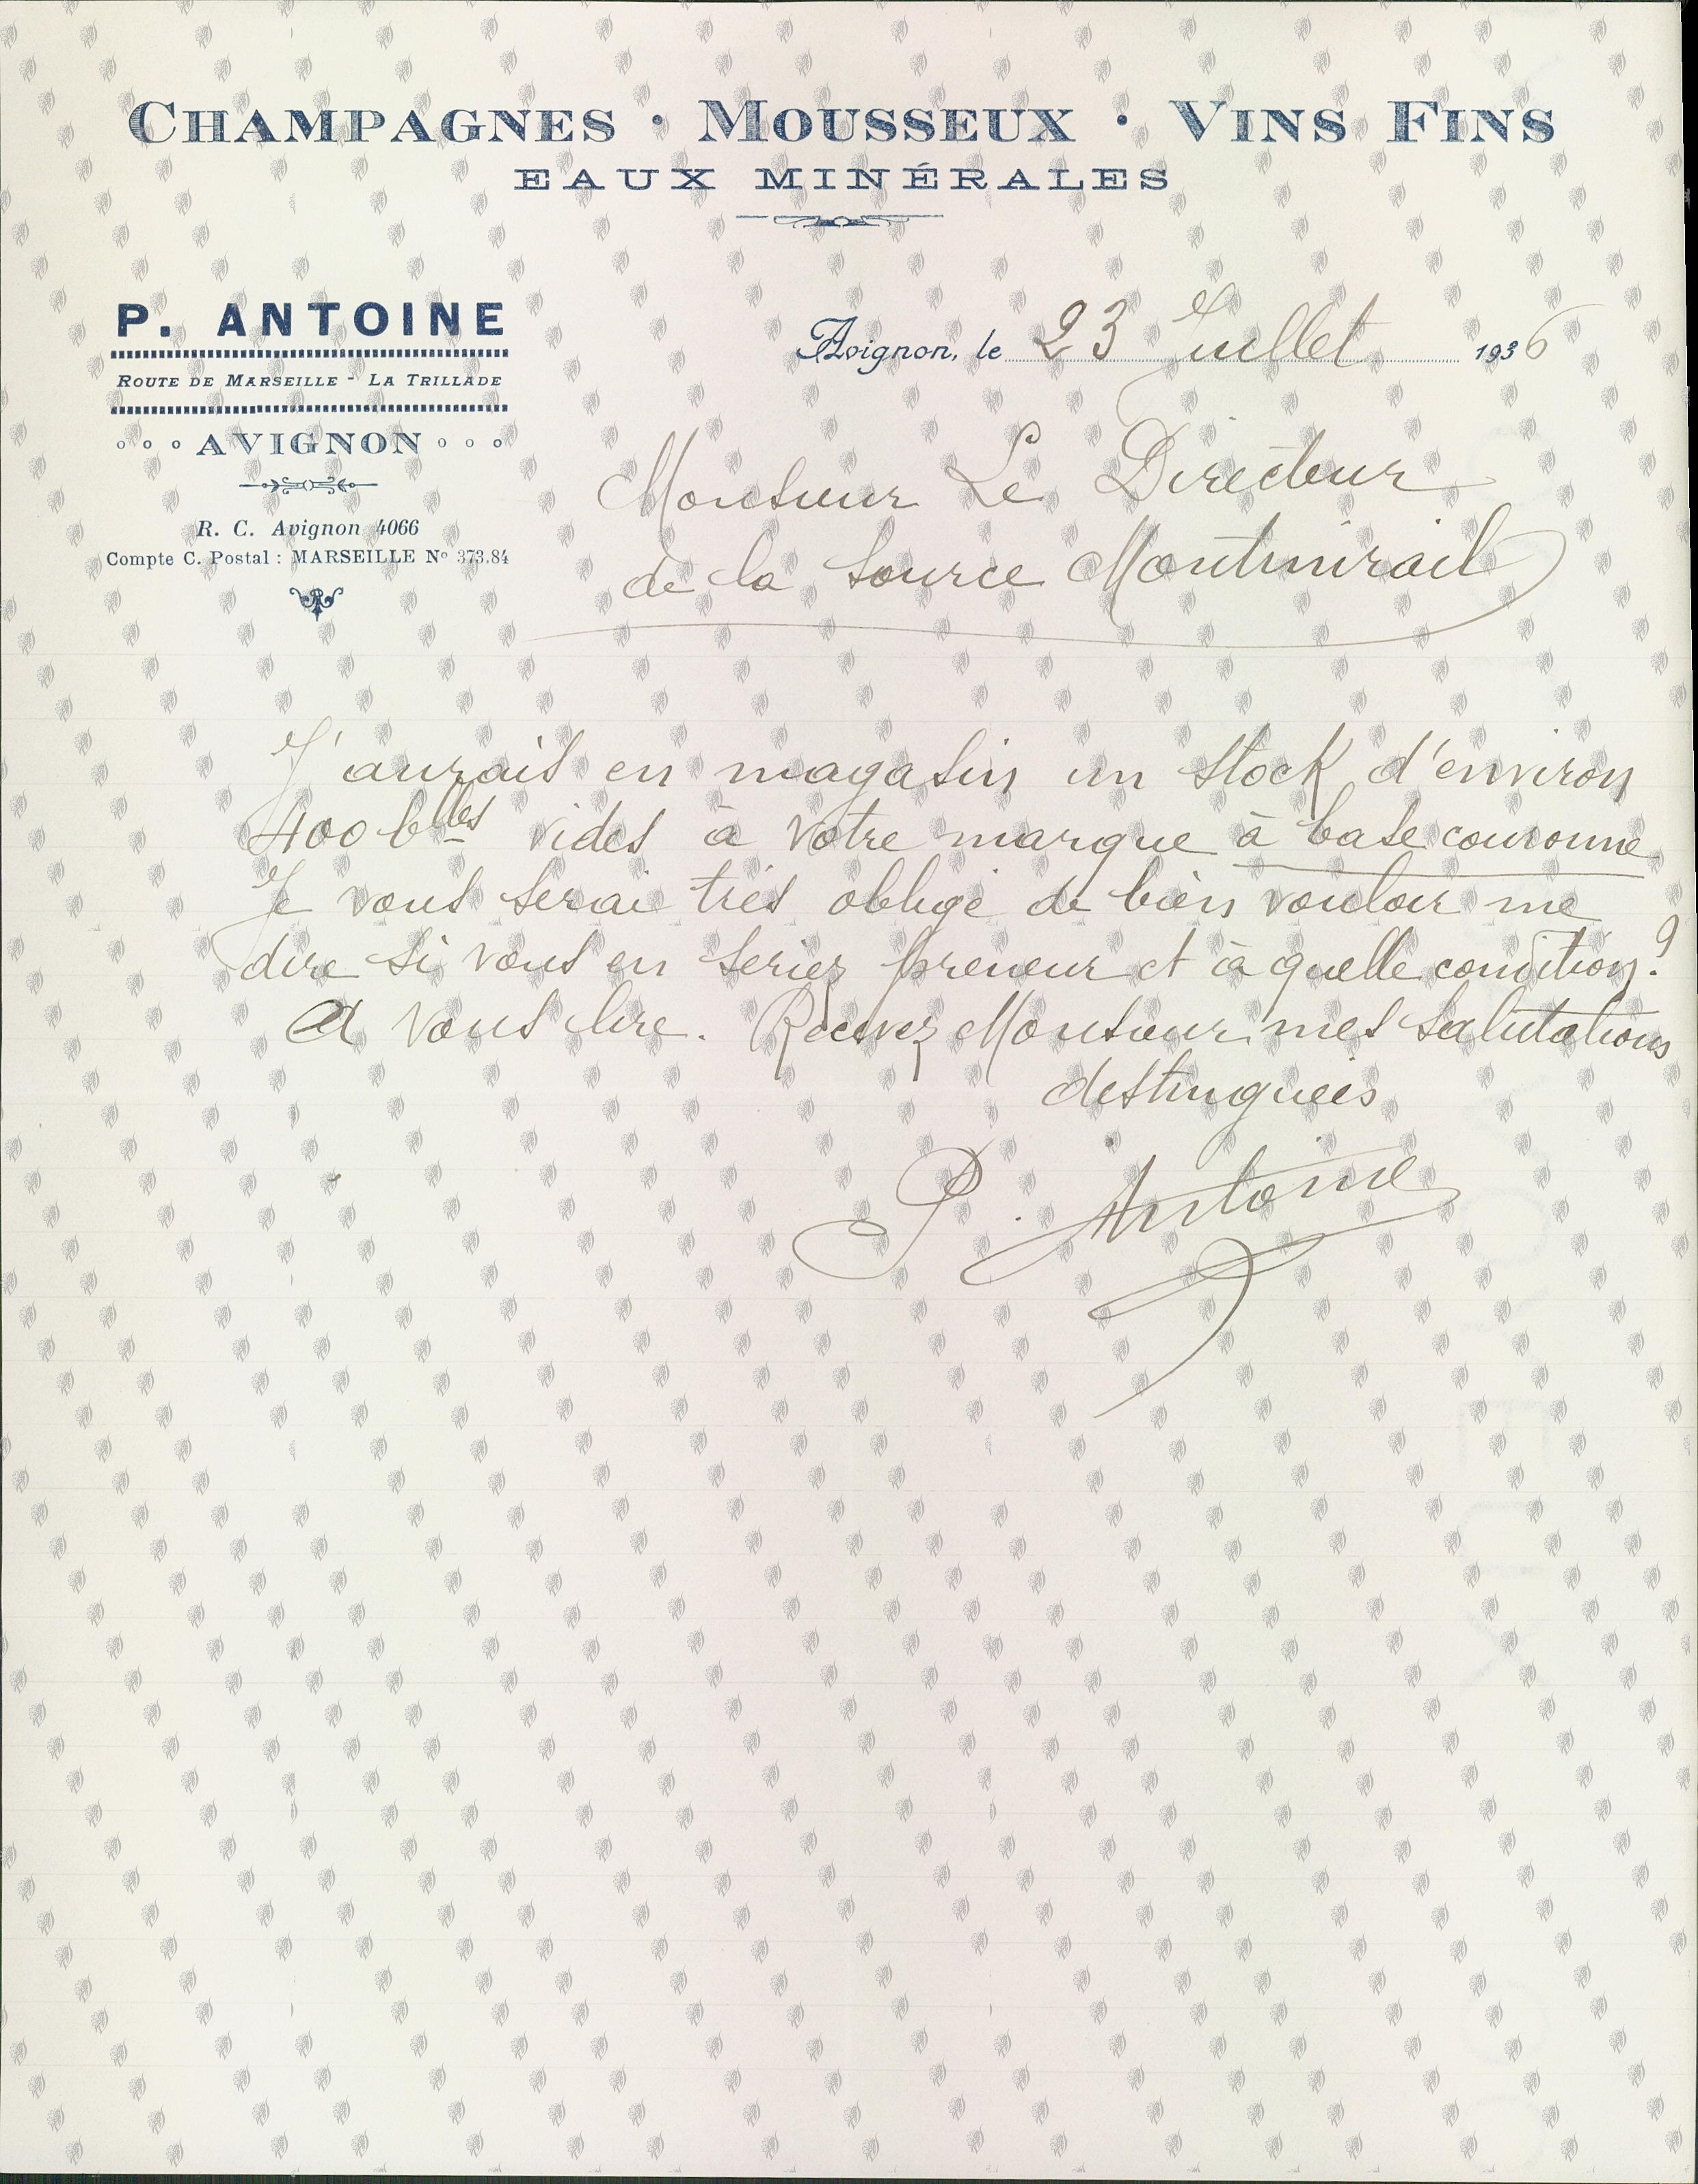 CHAMPAGNES • MOUSSEUX • VINS FINS
EAUX MINÉRALES
P. ANTOINE
ROUTE DE MARSEILLE - LA TRILLADE
AVIGNON
R. C. Avignon 4066
Compte C. Postal : MARSEILLE No 373.84
Avignon, le 23 Juillet 1936
Monsieur Le Directeur
de la Source Montmirail
J'aurais en magasin un stock d'environ
400 blles vides à votre marque à base couronne
Je vous serai très obligé de bien vouloir me
dire si vous en seriez preneur et à quelle condition ?
A vous lire. Recevez Monsieur mes salutations
destinguées
P. Antoine